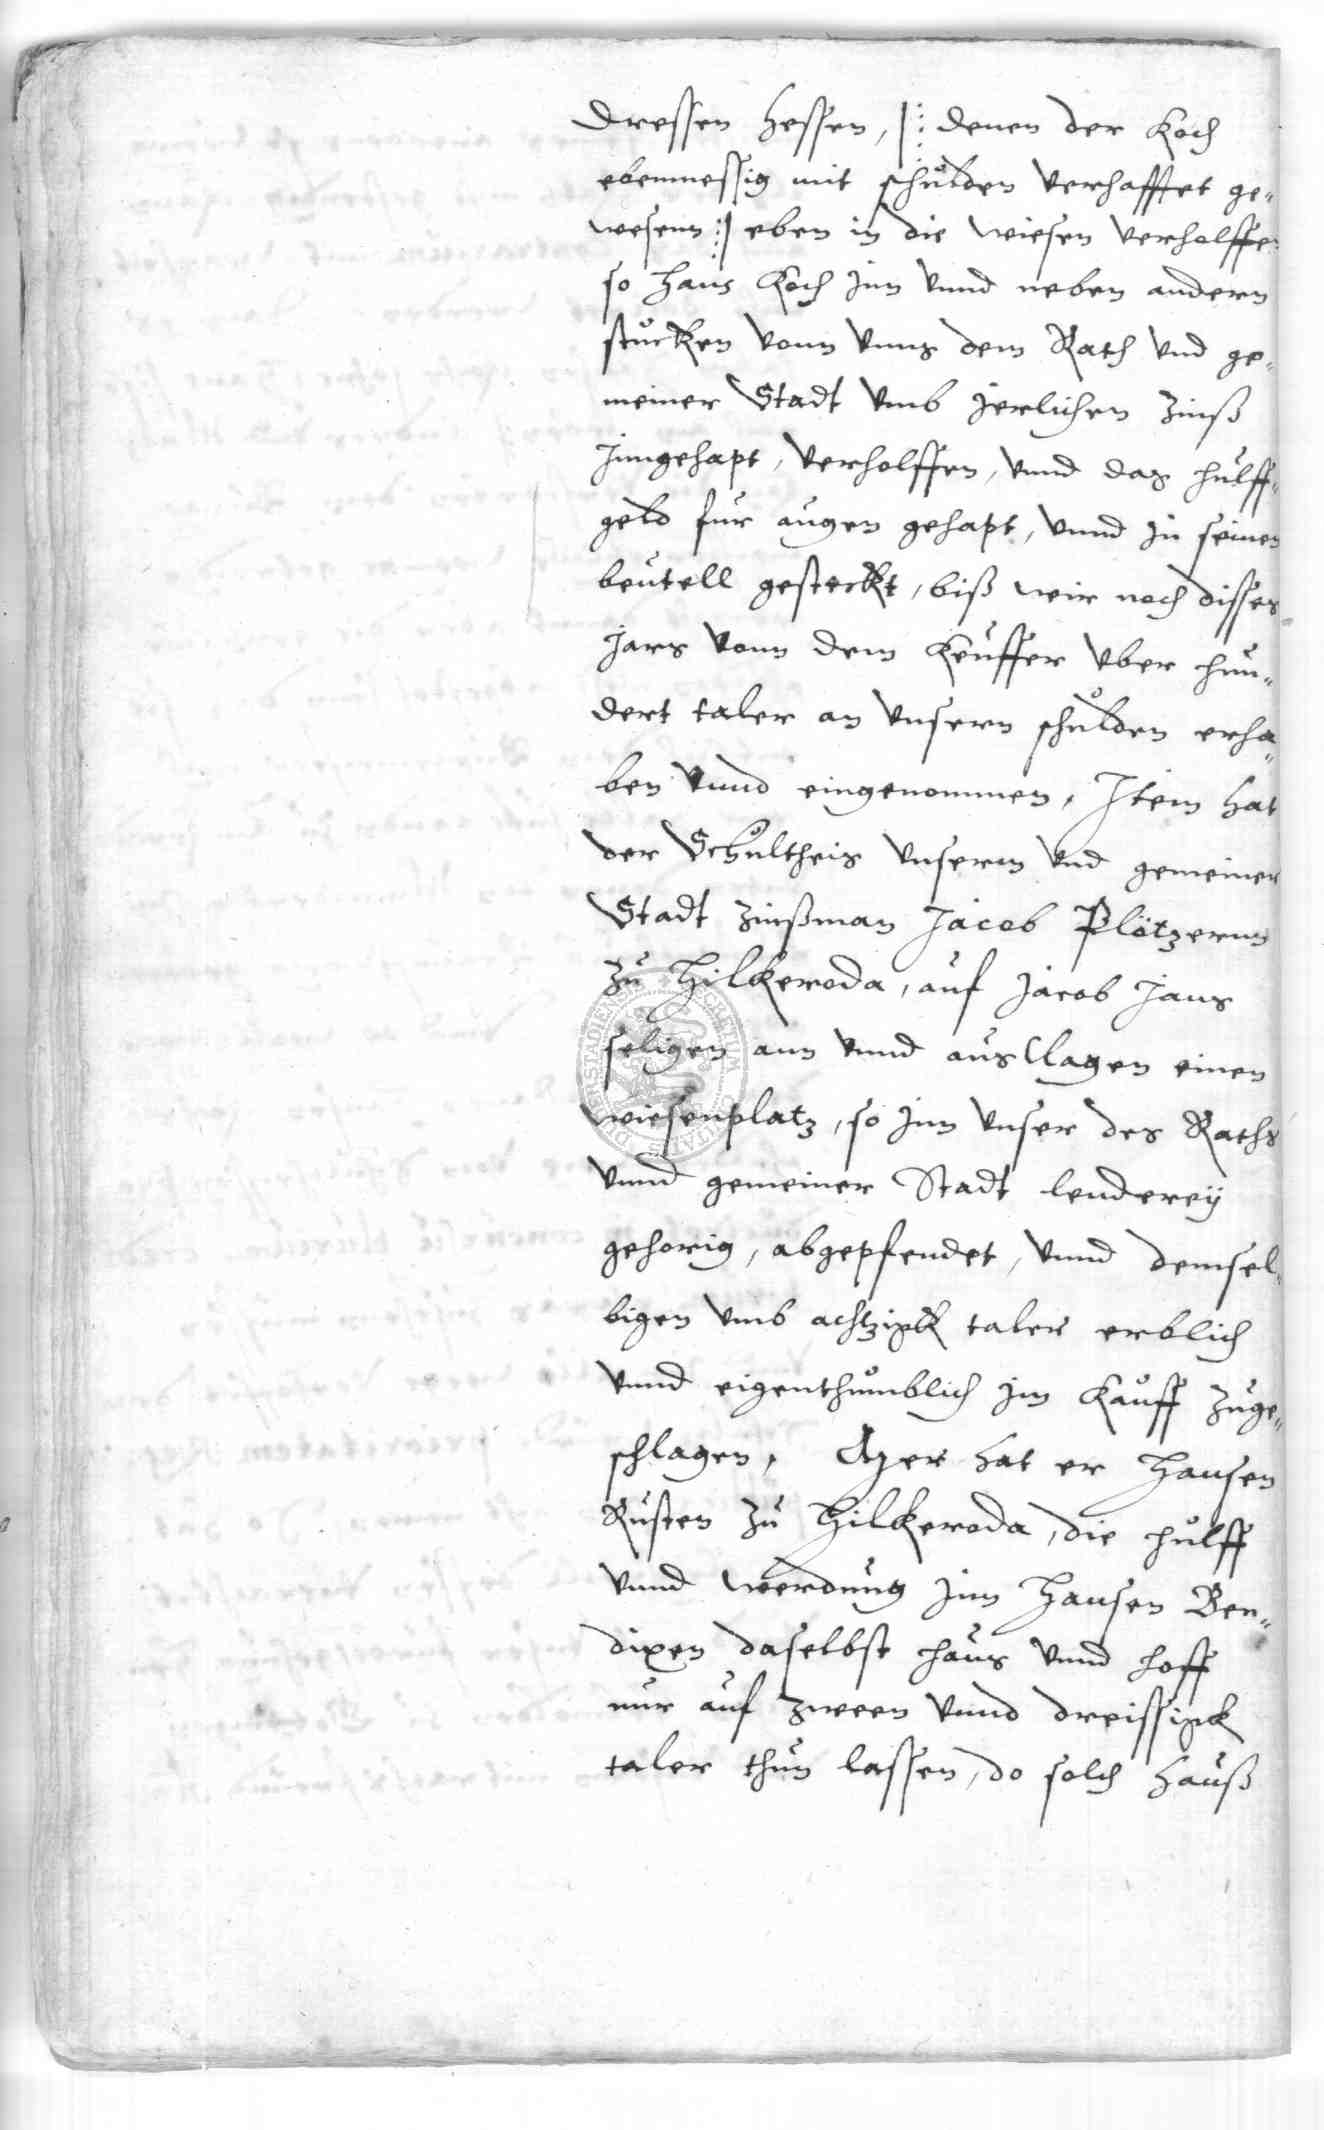 dressen Hessen, |: denen der Koch
ebenmessig mit schulden verhafftet ge¬
wesenn :| eben in die wiesen verholffen
so Hans Koch inn vnnd neben andern
stucken vonn vnns dem Rath vnd ge¬
meiner Stadt vmb jerlichen zinß
jnngehapt, verholffen, vnnd das hulff¬
geld fur augen gehapt, vnnd in seinen
beutell gesteckt, biß wir noch disses
jars vonn dem Keuffer vber hun¬
dert taler an vnsern schulden erha¬
ben vnnd eingenommen, Item hat
der Schultheis vnserm vnd gemeiner
Stadt zinßman Jacob Plötzernn
zu Hilkeroda, auf Jacob Jans
seligen ann vnnd ausclagen einen
wiesenplatz, so jnn vnser des Raths
vnnd gemeiner Stadt lenderey
gehorig, abgepfendet, vnnd demsel¬
bigen vmb achtzigk taler erblich
vnnd eigenthumblich im Kauff zuge¬
schlagen, Aber hat er Hansen
Rusten zu Hilkeroda, die hulff
vnnd werdung jnn Hansen Ben¬
dixen daselbst haus vnnd hoff
nur auf zween vnnd dreissigk
taler thun lassen, do solch Hauß